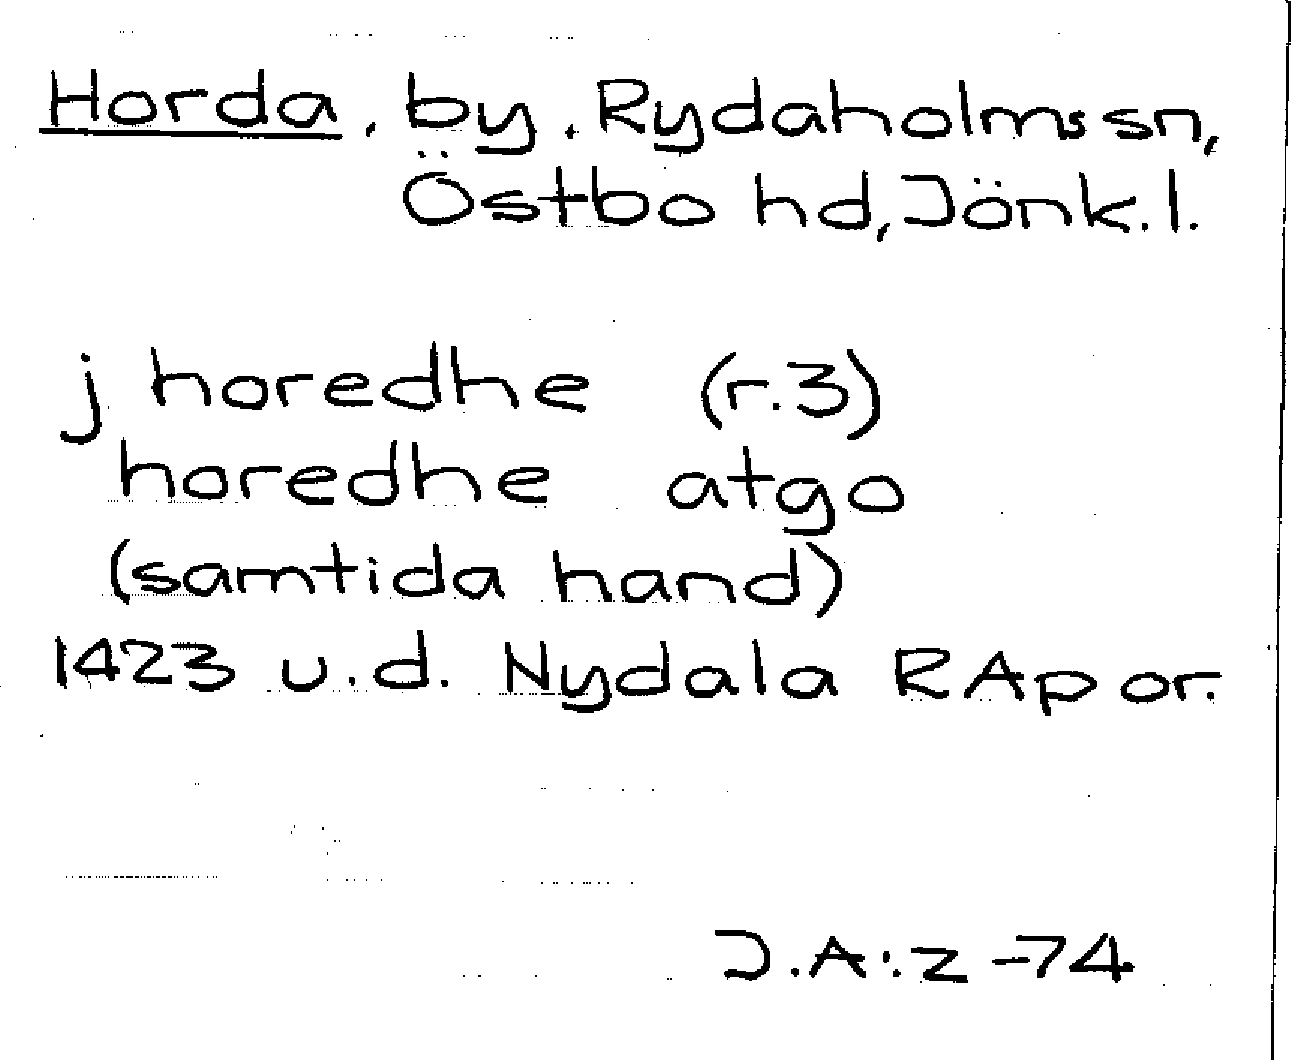 Horda, by. Rydaholms sn,
Östbo hd, Jönk. l.
j horedhe (r.3)
horedhe atgo
(samtida hand)
1423 u.d. Nydala RAp or.
J.A:z -74